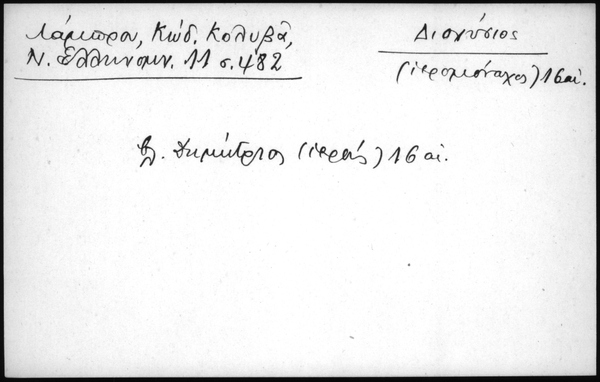 Λάμπρου, Κώδ. Κολυβᾶ,
Ν. Ἑλληνομν. 11 σ. 482
Διονύσιος
(ἱερομόναχος) 16 αἰ.
βλ. Δημήτριος (ἱερεύς) 16 αἰ.